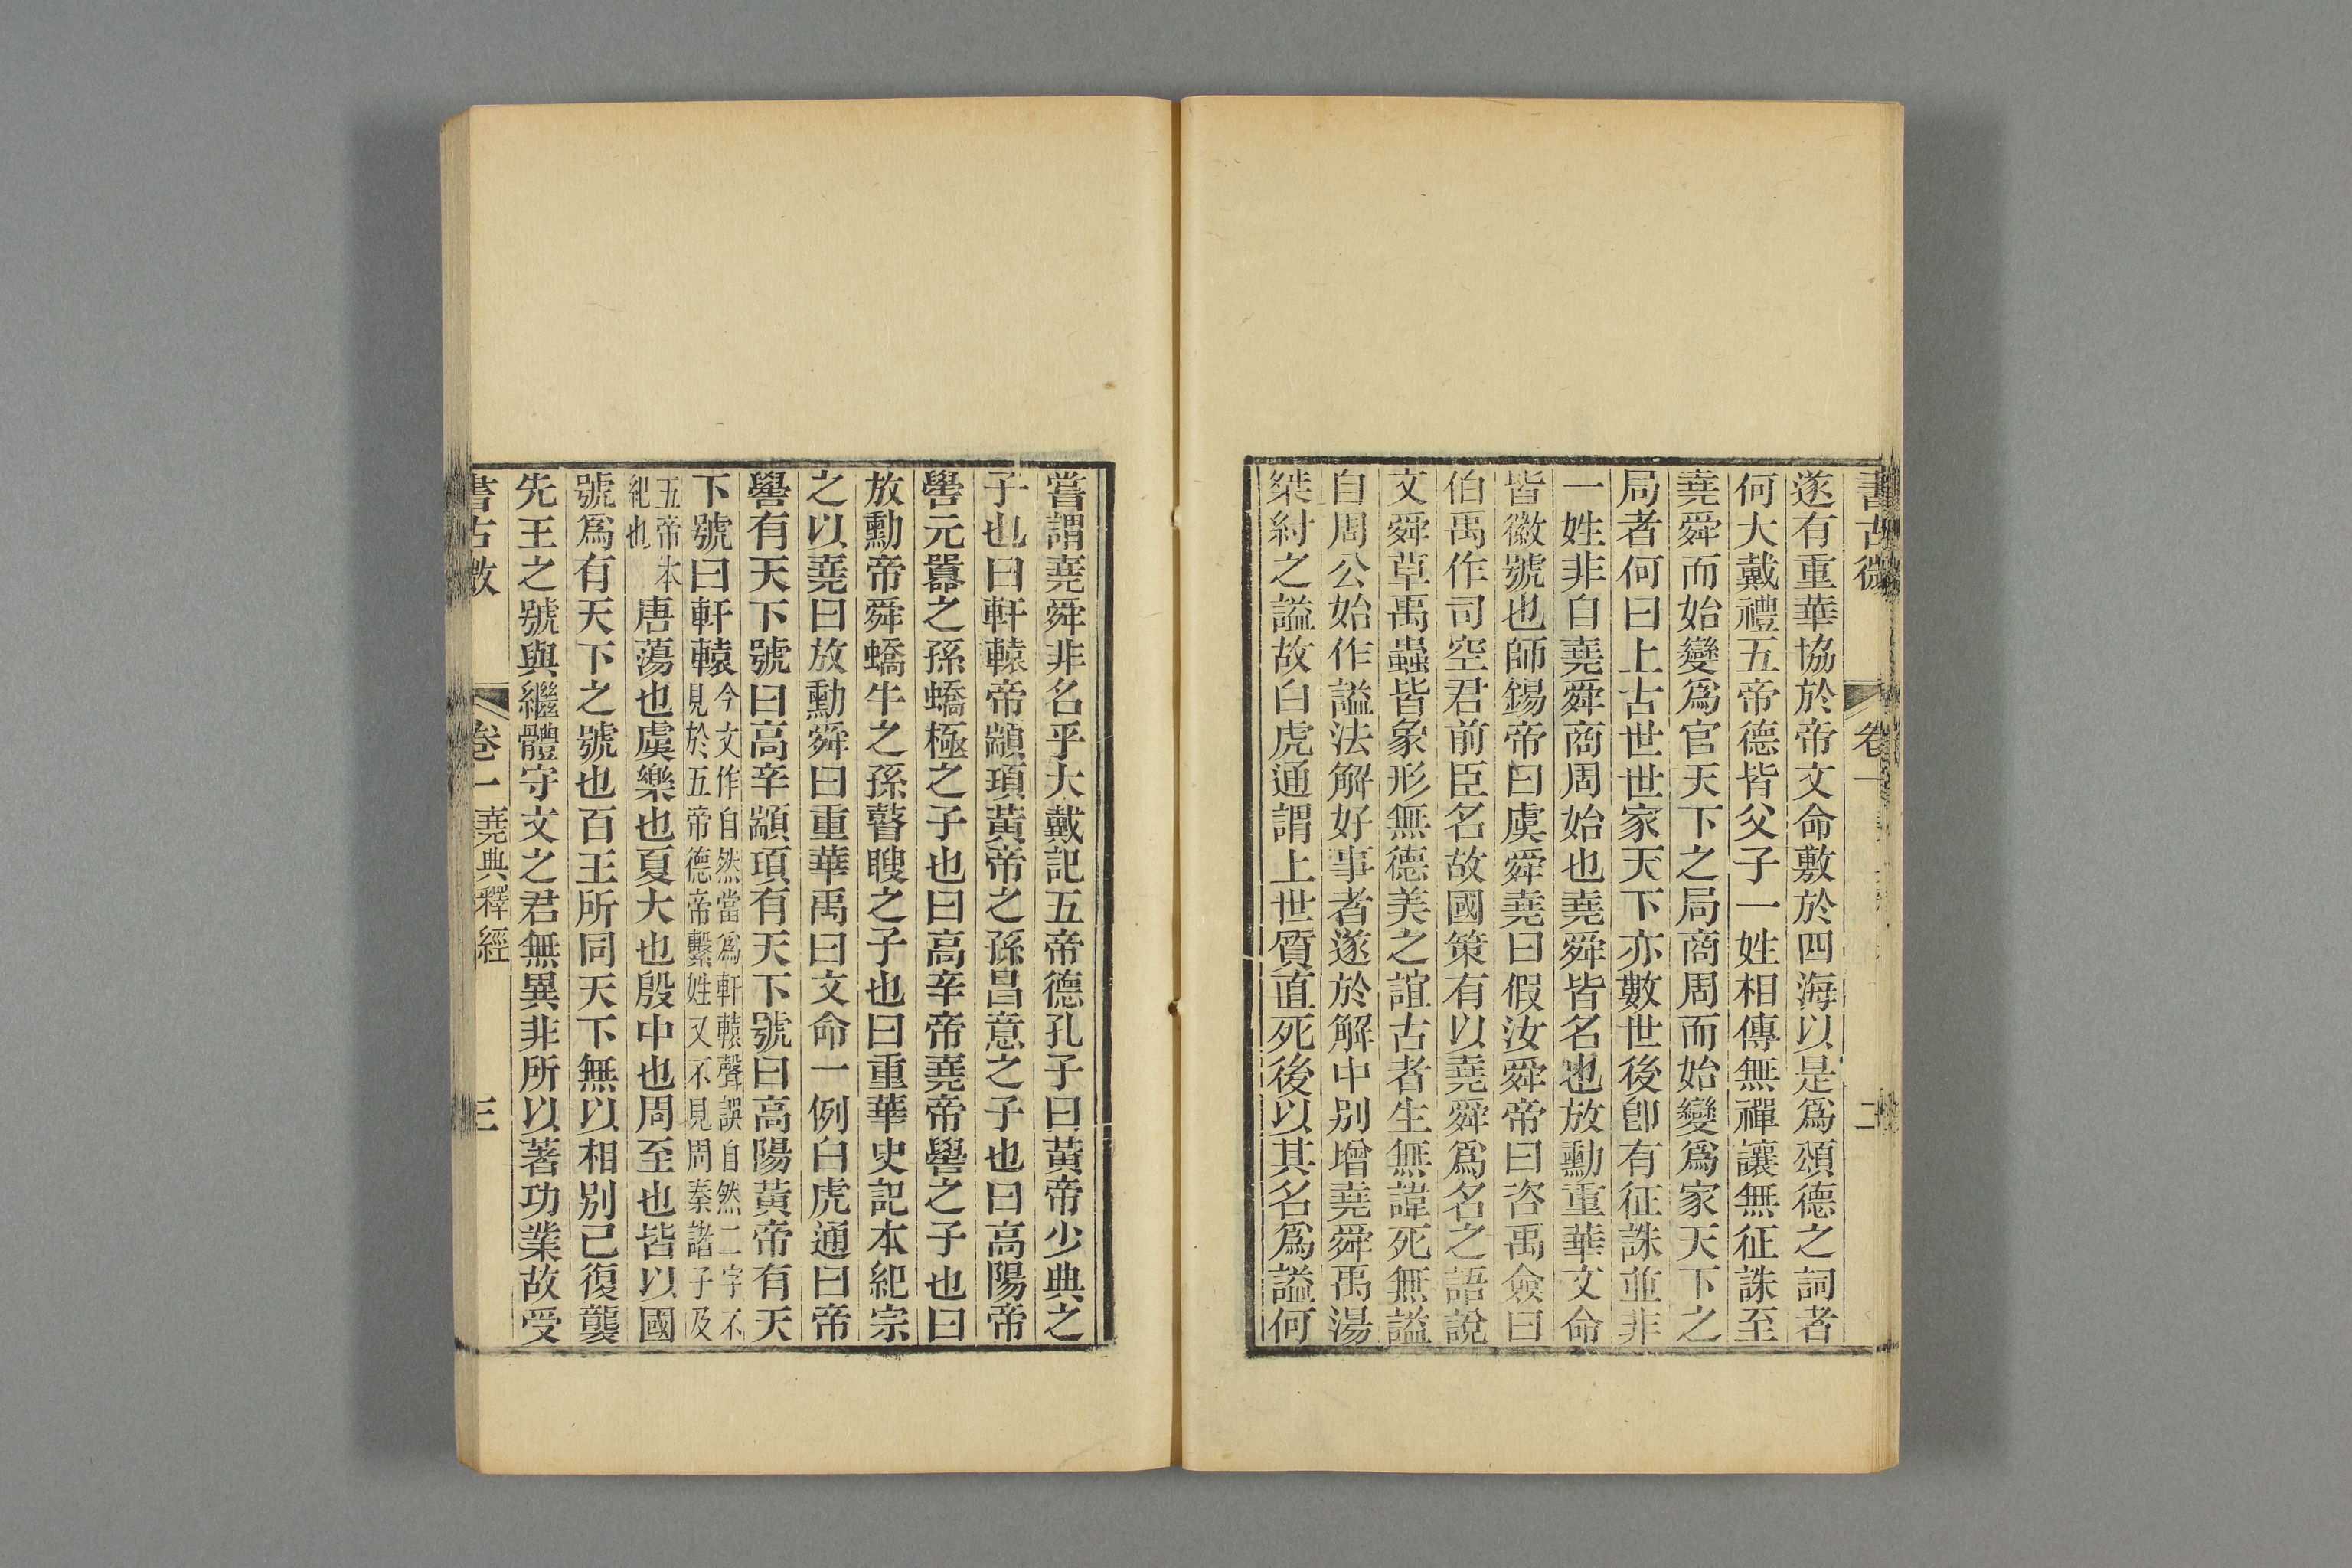 書古微
卷一
二
遂有重華協於帝文命敷於四海以是爲頌德之詞者
何大戴禮五帝德皆父子一姓相傳無禪讓無征誅至
堯舜而始變爲官天下之局商周而始變爲家天下之
局者何曰上古世世家天下亦數世後卽有征誅並非
一姓非自堯舜商周始也堯舜皆名也放勳重華文命
皆徽號也師錫帝曰虞舜堯曰假汝舜帝曰咨禹僉曰
伯禹作司空君前臣名故國策有以堯舜爲名之語說
文舜草禹蟲皆象形無德美之誼古者生無諱死無謚
自周公始作謚法解好事者遂於解中别增堯舜禹湯
桀紂之謚故白虎通謂上世質直死後以其名爲謚何
嘗謂堯舜非名乎大戴記五帝德孔子曰黃帝少典之
子也曰軒轅帝顓頊黃帝之孫昌意之子也曰高陽帝
嚳元囂之孫蟜極之子也曰高辛帝堯帝嚳之子也曰
放勳帝舜蟜牛之孫瞽瞍之子也曰重華史記本紀宗
之以堯曰放勳舜曰重華禹曰文命一例白虎通曰帝
嚳有天下號曰高辛顓頊有天下號曰高陽黃帝有天
下號曰軒轅今文作自然當爲軒轅聲誤自然二字不見於五帝德帝繫姓又不見周秦諸子及
五帝本紀也唐蕩也虞樂也夏大也殷中也周至也皆以國
號爲有天下之號也百王所同天下無以相别己復襲
先王之號與繼體守文之君無異非所以著功業故受
書古微
卷一堯典釋經
三